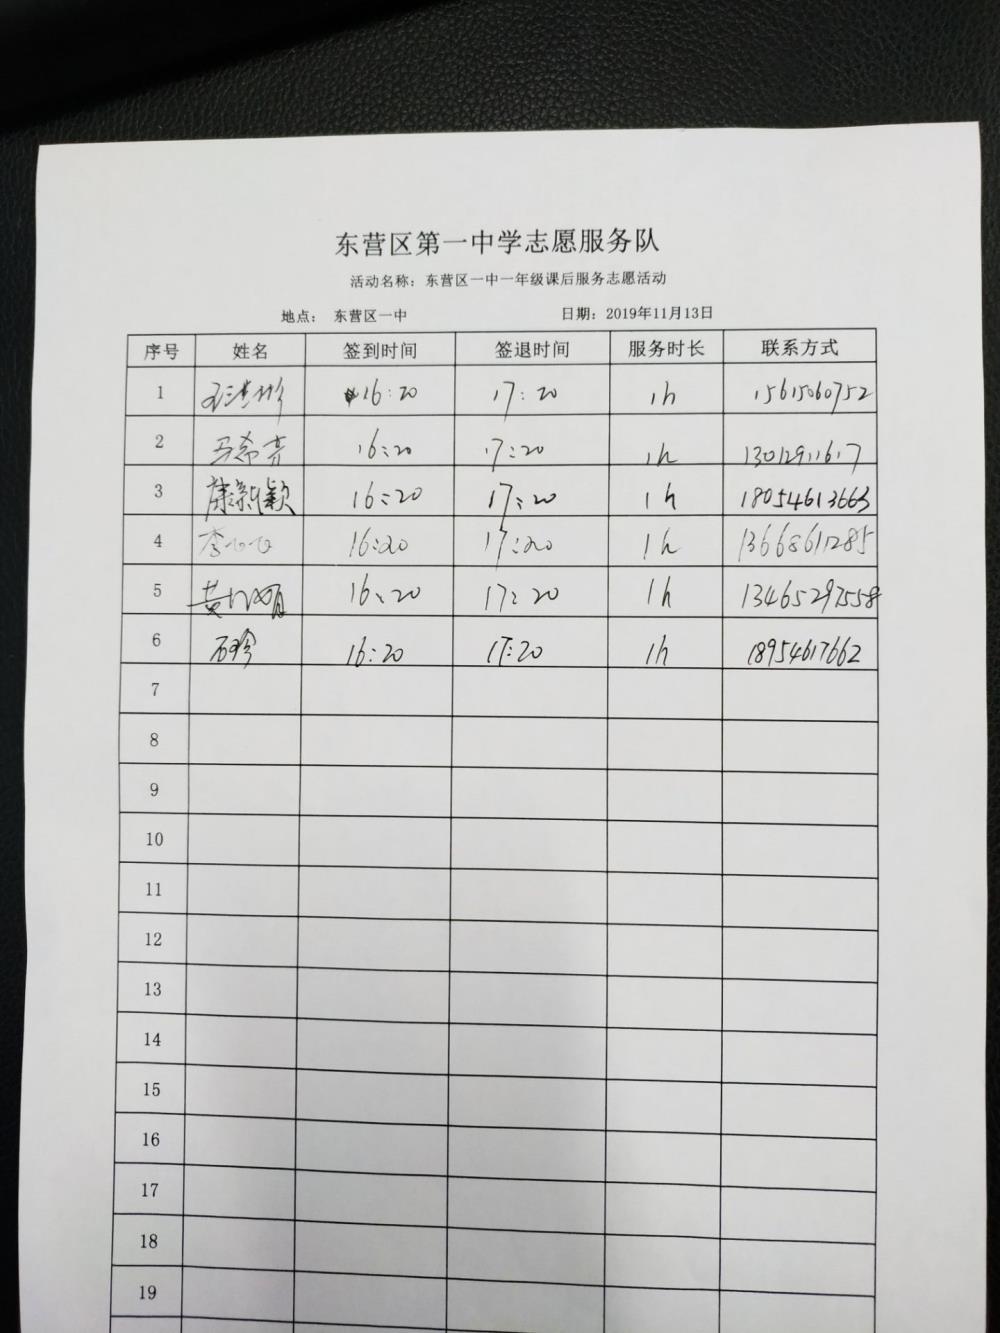 东营区第一中学志愿服务队
活动名称：东营区一中一年级课后服务志愿活动
地点： 东营区一中 日期：2019年11月13日
序号 姓名 签到时间 签退时间 服务时长 联系方式
1 16:20 17:20 1h 15615060752
2 马希芳 16:20 17:20 1h 13012911617
3 康新颖 16:20 17:20 1h 18054613663
4 李 16:20 17:20 1h 13668611285
5 黄 16:20 17:20 1h 13465297558
6 石珍 16:20 17:20 1h 18954617662
7
8
9
10
11
12
13
14
15
16
17
18
19